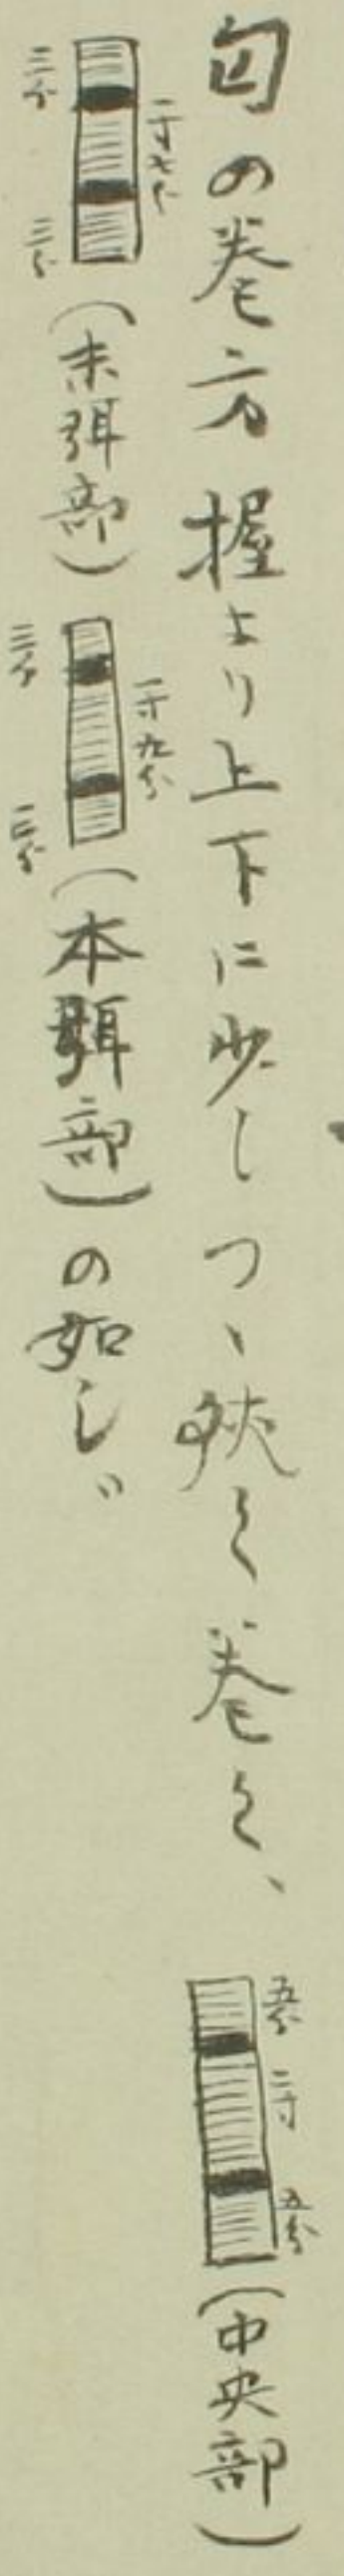 匂の巻方握より上下に少しつゝ狭く巻く、五分 二寸 五分(中央部)
三分 一寸七分 三分(末弭部)三分 一寸九分 三分(本弭部)の如し